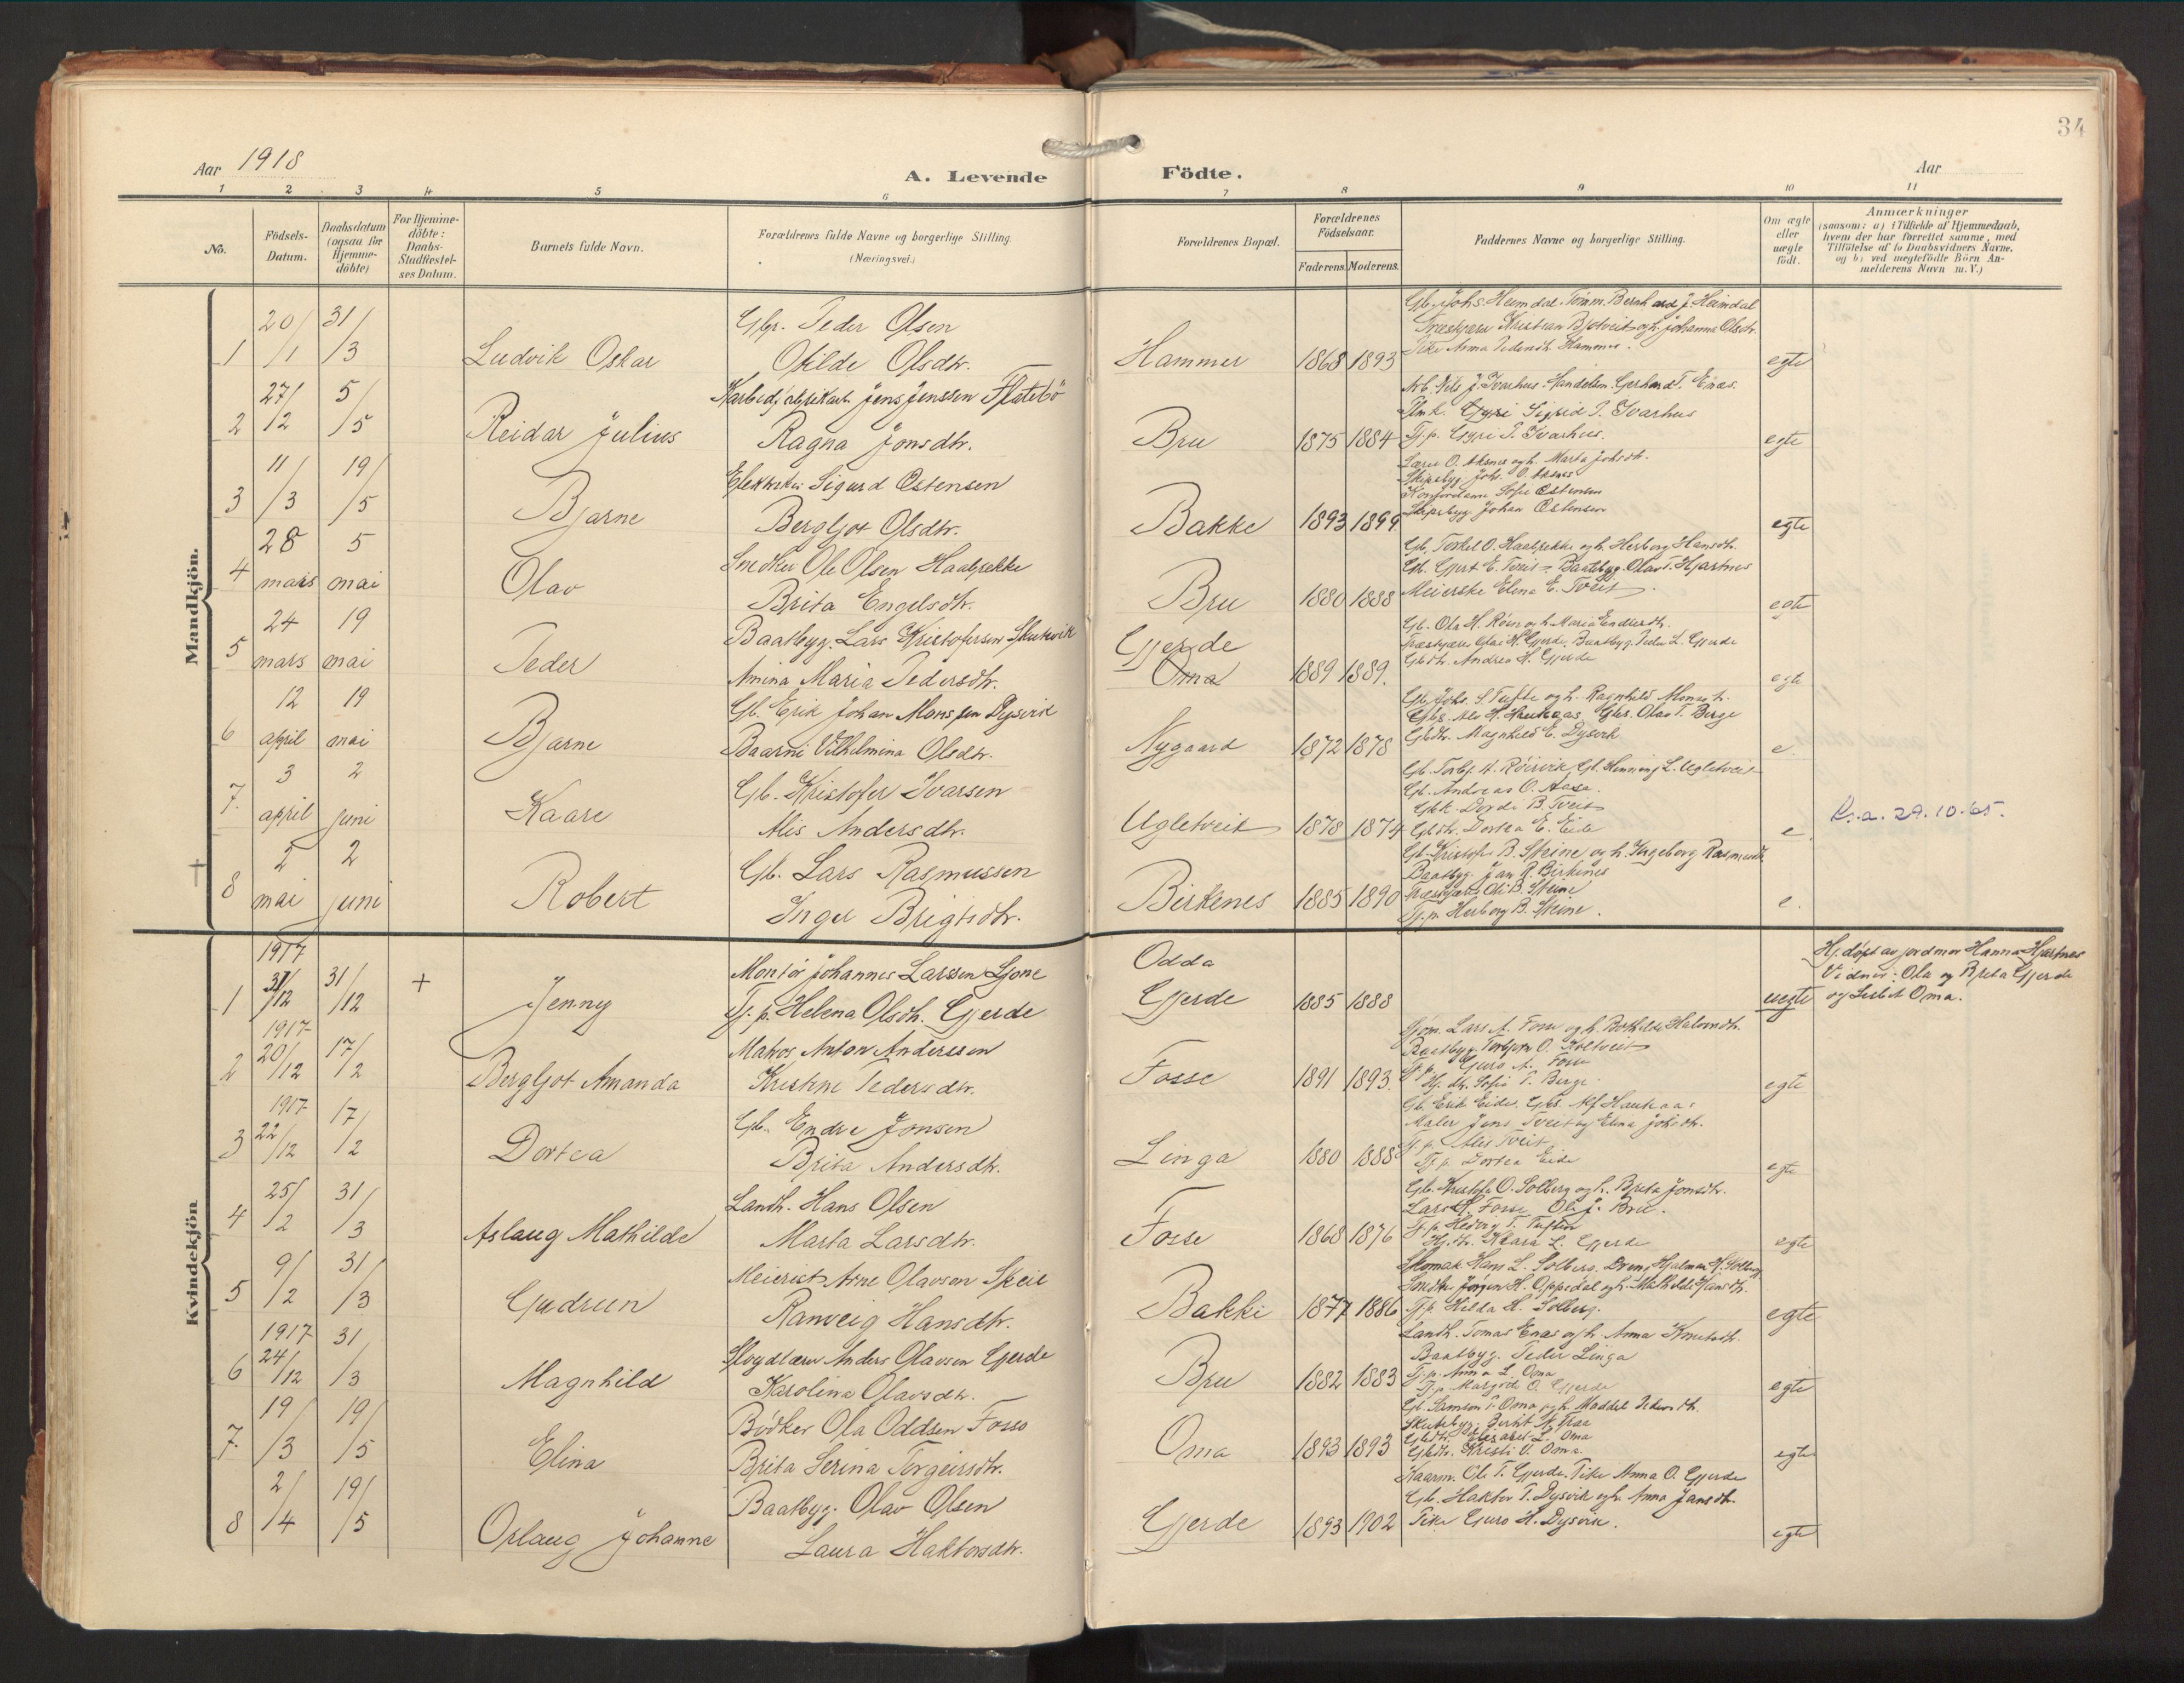 34
Aar 1918
A. Levende Födte.
Aar
1 2 3 4 5 6 7 8 9 10 11
No.
Födsels-
Datum.
Daabsdatum
(ogsaa for
Hjemme-
döbte)
For Hjemme-
döbte:
Daabs-
Stadfæstel-
ses Datum.
Barnets fulde Navn.
Forældrenes fulde Navne og borgerlige Stilling.
(Næringsvei.)
Forældrenes Bopæl.
Forældrenes
Födselsaar.
Faderens. Moderens.
Faddernes Navne og borgerlige Stilling.
Om ægte
eller
uægte
födt.
Anmærkninger
(saasom: a) i Tilfælde af Hjemmedaab,
hvem der har forrettet samme, med
Tilföielse af to Daabsvidners Navne,
og b) ved uegtefödte Börn An-
melderens Navn m. V.)
Mandkjön.
1 20/1 31/3 Ludvik Oskar
Gbr. Peder Olsen
Otilde Olsdtr.
Hammer 1868 1893
Gb. Johs. Heimdal. Tömm. Bernhard J. Heimdal
Kristian og h. Johanna Olsdtr.
Pike Anna Pedersdtr. Hammer.
egte
2 27/12 5/5 Reidar Julius
Jens Jenssen Flatebö
Ragna Jonsdtr.
Bru 1875 1884
Arb. Nils J. Ivarhus. Gerhard T. Enæs.
Gyri Sigrid P. Ivarhus
Tj.p. Gyri P. Ivarhus.
egte
3 11/3 19/5 Bjarne
Sigurd Østensen
Bergljot Olsdtr.
Bakke 1893 1899
O. Aksnes og h. Marta Johsdtr.
Skipsbyg. Johs. O. Aksnes
Sofie Østensen
Skipsbyg. Johan Østensen
egte
4 28 mars 5 mai Olav
Snedker Ole Olsen Haabrekke
Brita Engelsdtr.
Bru 1880 1888
Gb. Torkel O. Haabrekke og h. Herborg Hansdtr.
Gb. Gjert E. Tveit - Baatbyg. Olav T. Hjartnes
Meierske Elena E. Tveit.
egte
5 24 mars 19 mai Peder
Baatbyg. Lars Kristofersen Skutevik
Amina Maria Pedersdtr.
Gjerde
Oma 1889 1889.
Gb. Ola H. og h. Maria Endresdtr.
Olai H. Gjerde. Baatbyg. Peder L. Gjerde
Gbdtr. Andrea H. Gjerde
egte
6 12 april 19 mai Bjarne
Gb. Erik Johan Monssen Dysvik
Baarni Vilhelmina Olsdtr.
Nygaard 1872 1878
Gb. Johs. S. Tufte og h. Ragnhild Monsdtr.
Gbs. Olav T. Berge
Gbdtr. Magnhild E. Dysvik
e.
7. 3 april 2 juni Kaare
Gb. Kristofer Ivarsen
Alis Andersdtr.
Ugletveit 1878 1874
Gb. Torbj. A. Röirvik, Gb. Henning L. Ugletveit
Gb. Andreas O. Aase.
Gbk. Dorde B. Tveit
Gbdtr. Dortea E. Eide
e.
K.a. 29.10.65.
+
8 2 mai 2 juni Robert
Gb. Lars Rasmussen
Inger Brigtsdtr.
Birkenes 1885 1890
Gb. Kristofer B. Steine og h. Ingeborg Rasmusdtr.
Baatbyg. Jan R. Birkenes
Ole B. Steine
Tj.p. Herborg B. Steine.
e.
Kvindekjön
1 1917 31/12 31/12 + Jenny
Montör Johannes Larssen Ljone
Tj.p. Helena Olsdtr. Gjerde
Odda
Gjerde 1885 1888
uegte
Hj.döpt av jordmor Hanna Hjartnes
Vidner: Ola og Brita Gjerde
og Lisbet Oma.
2 1917 20/12 17/2 Bergljot Amanda
Matros Anton Anderssen
Kristine Pedersdtr.
Fosse 1891 1893.
Lars A. Fosse og h. Bothilda Halvorsdtr.
Baatbyg. Torbjörn O. Koltveit
Tj.p. Guro A. Fosse
Sofie T. Berge.
egte
3 1917 22/12 17/2 Dortea
Gb. Endre Jonsen
Brita Andersdtr.
Linga 1880 1888
Gb. Erik Eide. Gbs. Alf Haukaas
Maler Jens Tveit og Elina Johsdtr.
Tj.p. Alis Tveit
Tj.p. Dortea Eide
egte
4 25/2 31/3 Aslaug Mathilde
Landh. Hans Olsen
Marta Larsdtr.
Fosse 1868 1876
Gb. Kristofer O. Solberg og h. Brita Jonsdtr.
Lars H. Fosse Ole J. Bru.
Klara L. Gjerde
egte
5 9/2 31/3 Gudrun
Meierist Arne Olavson Skeie
Ranveig Hansdtr.
Bakke 1877 1886
Skomak. Hans L. Solberg. Dreng Hjalmar H. Solberg
Snedker Jörgen H. Oppedal og h. Mathilde Hansdtr.
Tj.p. Hilda H. Solberg.
egte
6 1917 24/12 31/3 Magnhild
Slöydlærer Anders Olavson Gjerde
Karolina Olavsdtr.
Bru 1882 1883
Landh. Tomas Enæs og h. Anna Knutsdtr.
Baatbyg. Peder Linga
Tj.p. Anna L. Oma
Tj.p. Margrete O. Gjerde
egte
7. 19/3 19/5 Elina
Bödker Ola Oddsen Fosso
Brita Serina Torgeirsdtr.
Oma 1893 1893
Gb. Samson T. Oma og h. Maddel Pedersdtr.
Skutebyg.
Gbdtr. Elisabet L. Oma
Gbdtr. Kristi V. Oma
egte
8 2/4 19/5 Oslaug Johanne
Baatbyg. Olav Olsen
Laura Haktorsdtr.
Gjerde 1893 1902
Kaarm. Ole T. Gjerde. Pike Anna O. Gjerde
Gb. Haktor T. Dysvik og h. Anna Jansdtr.
Pike Guro H. Dysvik.
egte